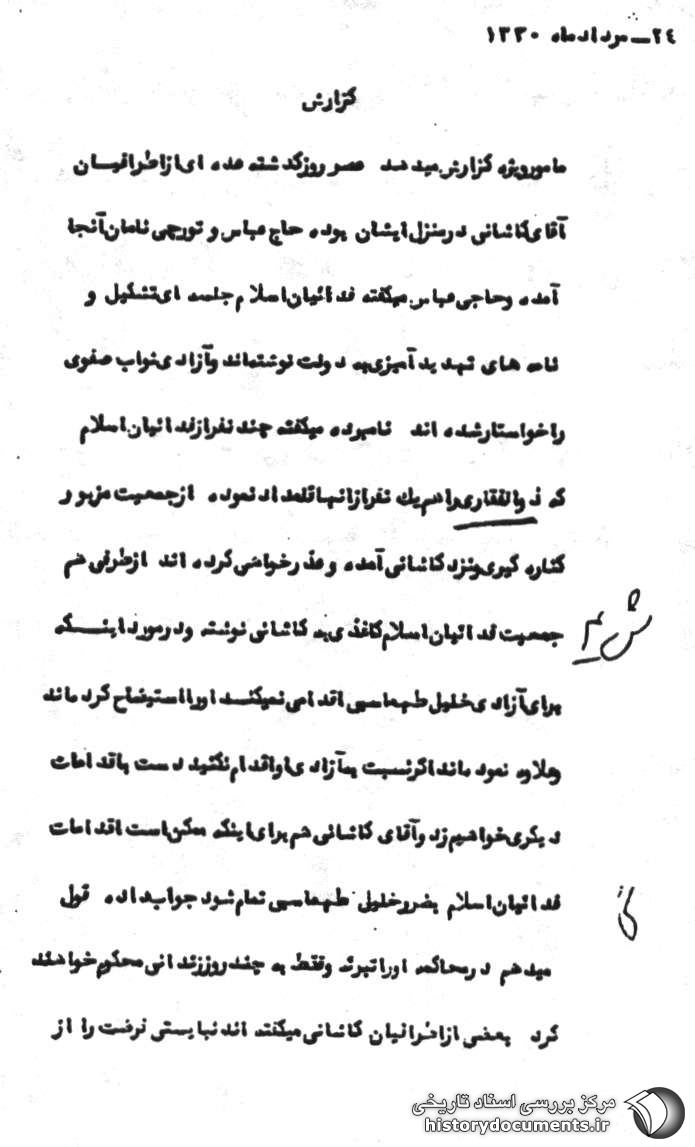 ۲۴ـ مرداد ماه ۱۳۳۰
گزارش
مامور ویژه گزارش میدهد عصر روز گذشته عده ای از اطرافیان
آقای کاشانی در منزل ایشان بوده حاج عباس و تورچی نامان آنجا
آمده و حاجی عباس میگفته فدائیان اسلام جلسه ای تشکیل و
نامه های تهدید آمیزی به دولت نوشته‌اند و آزادی نواب صفوی
را خواستار شده اند نامبرده میگفته چند نفر از فدائیان اسلام
که ذوالفقاری را هم یك نفر از آنها قلمداد نموده از جمعیت مزبور
کناره گیری و نزد کاشانی آمده و عذر خواهی کرده اند از طرفی هم
جمعیت فدائیان اسلام کاغذی به کاشانی نوشته و در مورد اینکه
برای آزادی خلیل طهماسبی اقدامی نمیکند او را استیضاح کرده‌اند
و علاوه نموده‌اند اگر نسبت به آزادی او اقدام نکنید دست باقدامات
دیگری خواهیم زد و آقای کاشانی هم برای اینکه ممکن است اقدامات
فدائیان اسلام بضرر خلیل طهماسبی تمام شود جواب داده قول
میدهم در محاکمه او را تبرئه و فقط به چند روز زندانی محکوم خواهند
کرد بعضی از اطرافیان کاشانی میگفته اند نبایستی فرصت را از
مرکز بررسی اسناد تاریخی
historydocuments.ir